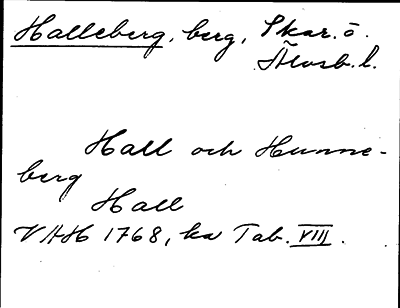 Halleberg, berg, Skar. o.
Älvsb. l.
Hall och Hunne-
berg
Hall
VAH 1768, ka Tab. VIII.